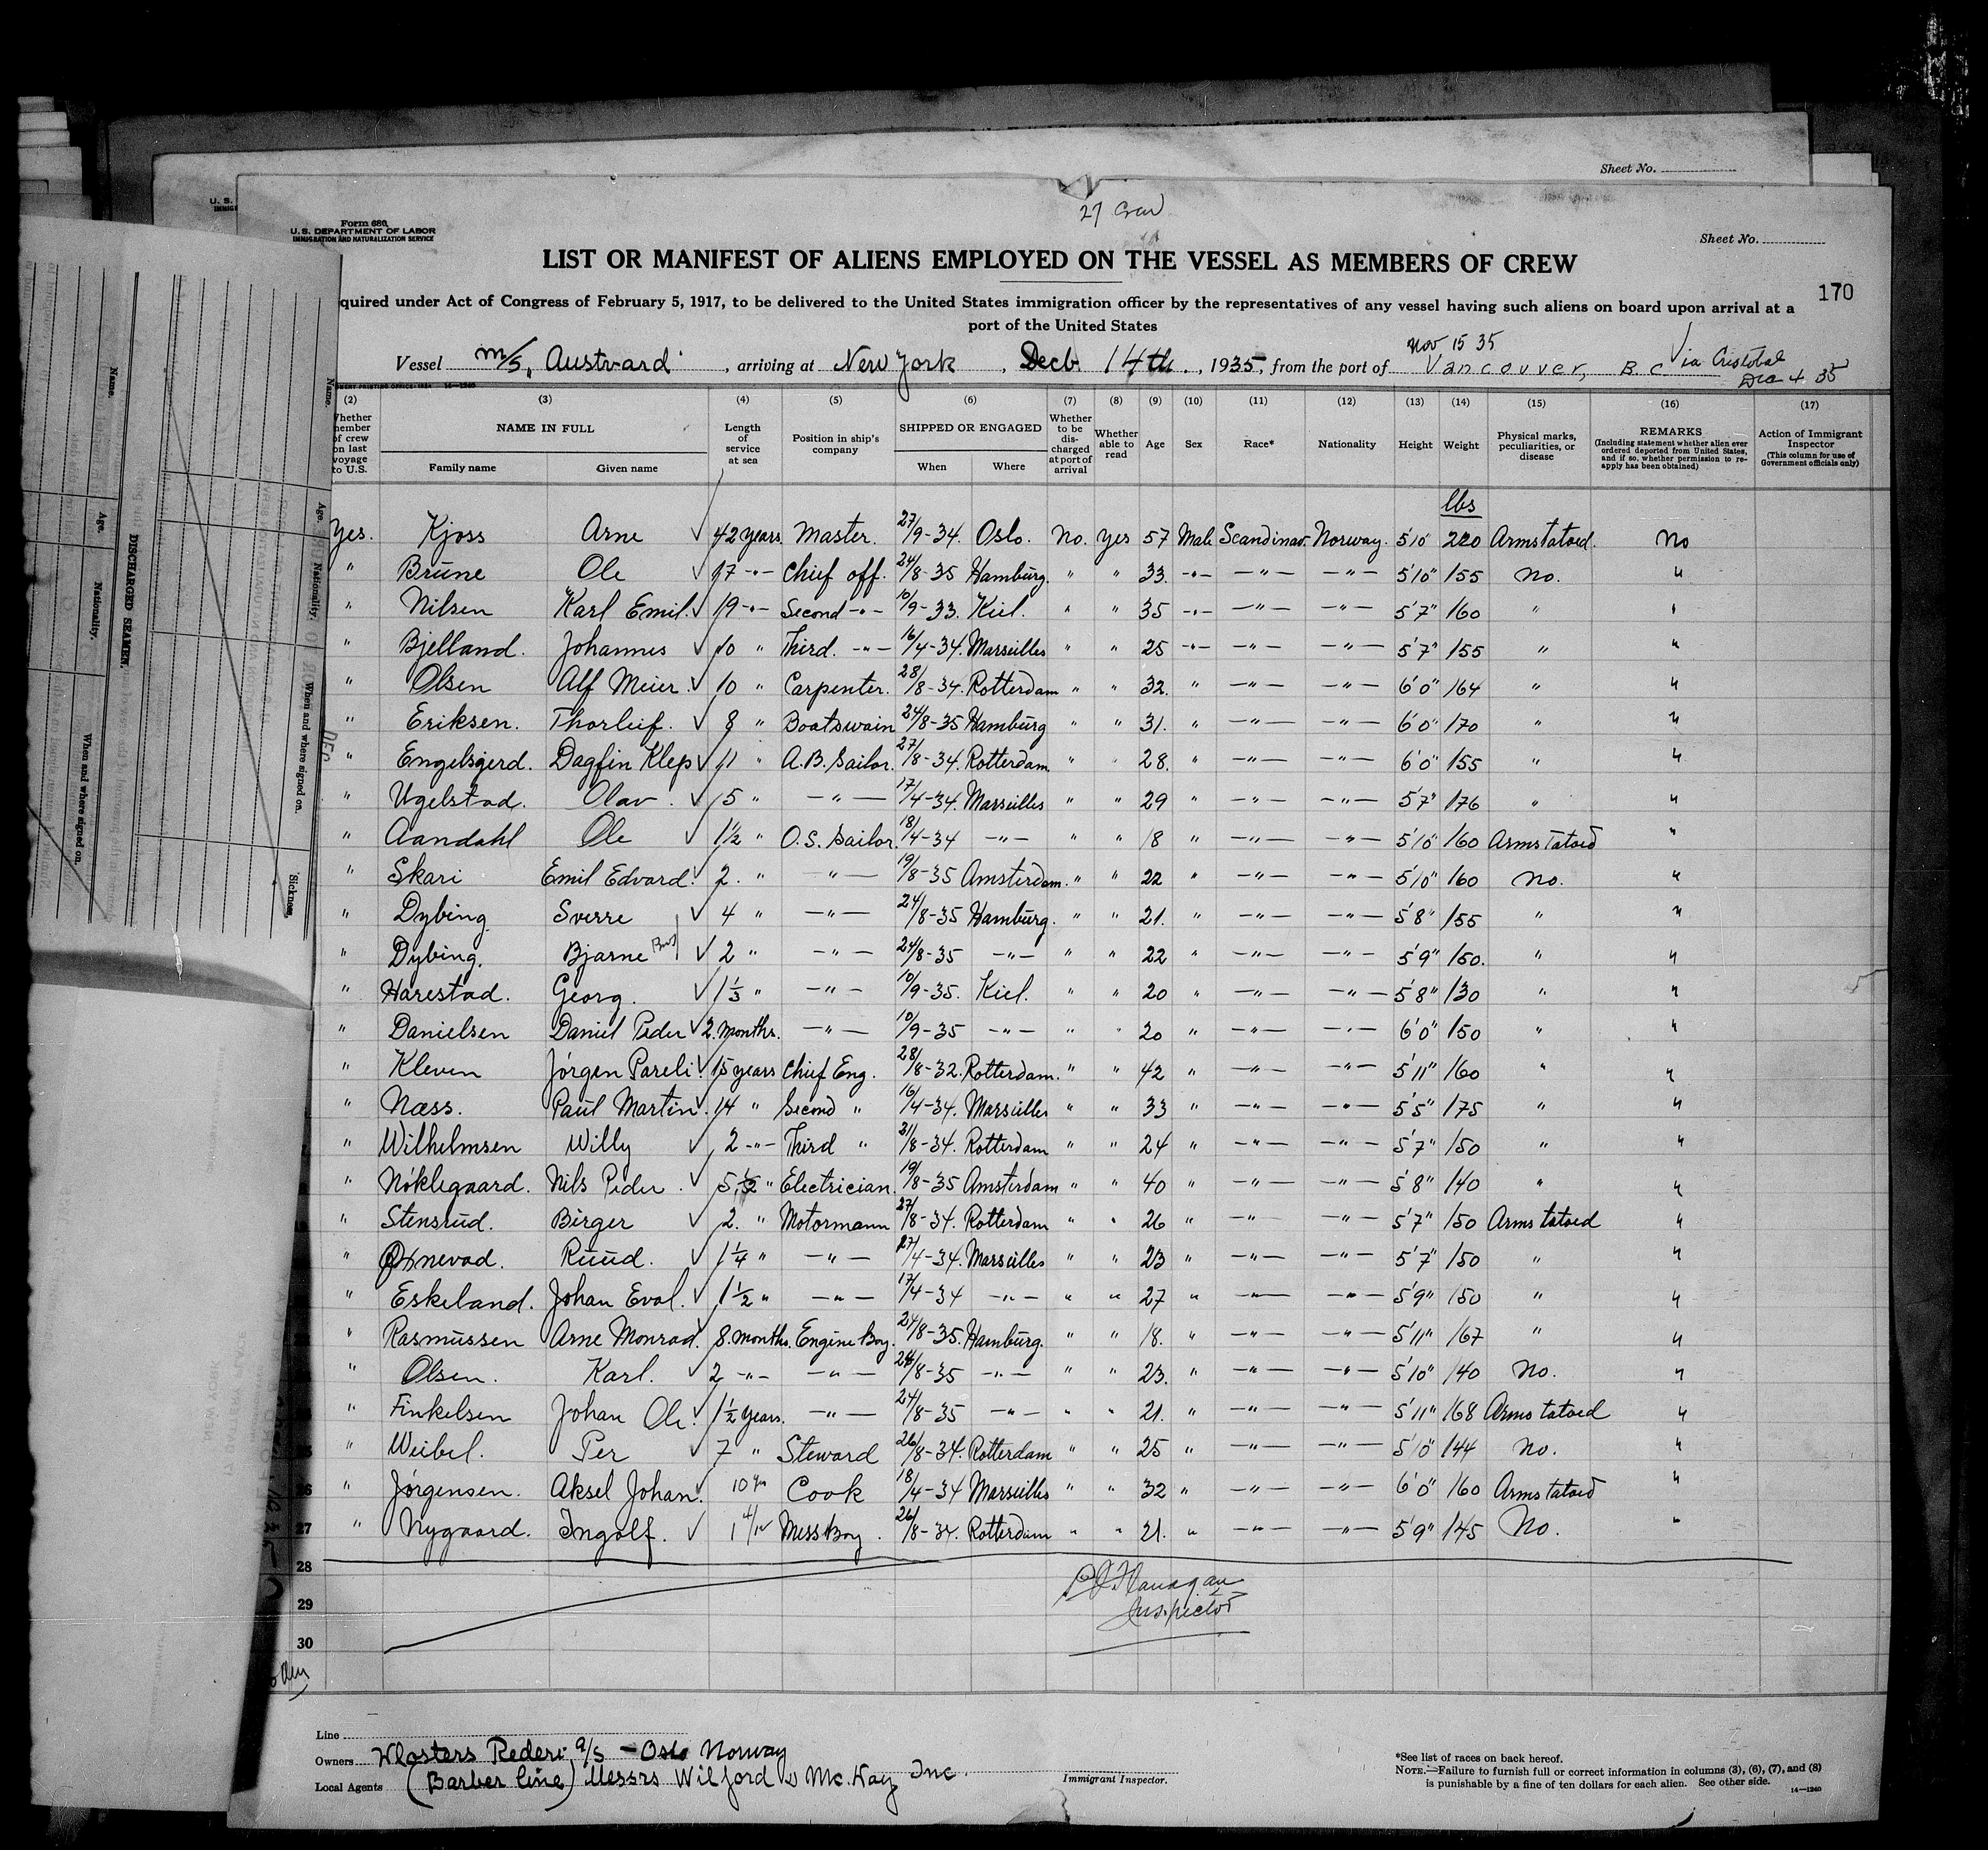 Sheet No.
27 Crew
Form 680
U. S. DEPARTMENT OF LABOR
IMMIGRATION AND NATURALIZATION SERVICE
Sheet No.
LIST OR MANIFEST OF ALIENS EMPLOYED ON THE VESSEL AS MEMBERS OF CREW
170
quired under Act of Congress of February 5, 1917, to be delivered to the United States immigration officer by the representatives of any vessel having such aliens on board upon arrival at a
port of the United States
Nov 15 35
Vessel M/S "Austvard" , arriving at New York , Decb. 14th , 1935, from the port of Vancouver, B C Via Cristobal
Dec 4 35
(2) (3) (4) (5) (6) (7) (8) (9) (10) (11) (12) (13) (14) (15) (16) (17)
Whether member of crew on last voyage to U.S. NAME IN FULL Family name Given name Length of service at sea Position in ship's company SHIPPED OR ENGAGED When Where Whether to be discharged at port of arrival Whether able to read Age Sex Race* Nationality Height Weight Physical marks, peculiarities, or disease REMARKS (Including statement whether alien ever ordered deported from United States, and if so, whether permission to reapply has been obtained) Action of Immigrant Inspector (This column for use of Government officials only)
lbs
Yes. Kjoss Arne √ 42 years Master. 27/9-34. Oslo. No. Yes 57 Male Scandinav. Norway. 5'10 220 Arms tatoed. No
" Brune Ole √ 17 -"- Chief off. 24/8-35 Hamburg. " " 33. -"- -"- -"- 5'10" 155 No. "
" Nilsen Karl Emil. √ 19 -"- Second -"- 10/9-33. Kiel. " " 35 -"- -"- -"- 5'7" 160 " "
" Bjelland. Johannes √ 10 " Third. -"- 16/4-34. Marseilles " " 25 -"- -"- -"- 5'7" 155 " "
" Olsen Alf Meier. √ 10 " Carpenter. 28/8-34. Rotterdam " " 32. " -"- -"- 6'0" 164 " "
" Eriksen. Thorleif. √ 8 " Boatswain 24/8-35 Hamburg " " 31. " -"- -"- 6'0" 170 " "
" Engelsgjerd. Dagfin Klep √ 11 " A.B. Sailor. 27/8-34. Rotterdam " " 28. " -"- -"- 6'0" 155 " "
" Ugelstad. Olav. √ 5 " -"- 17/4-34. Marseilles " " 29 " -"- -"- 5'7" 176 " "
" Aandahl Ole √ 1½ " O.S. Sailor. 18/4-34 -"- " " 18 " -"- -"- 5'10" 160 Arms tatoed "
" Skari Emil Edvard. √ 2. " -"- 19/8-35 Amsterdam. " " 22 " -"- -"- 5'10" 160 No. "
" Dybing Sverre √ 4 " -"- 24/8-35 Hamburg. " " 21. " -"- -"- 5'8" 155 " "
" Dybing. Bjarne √ 2 " -"- 24/8-35 -"- " " 22 " -"- -"- 5'9" 150. " "
" Harestad. Georg. √ 1⅓ " -"- 10/9-35. Kiel. " " 20 " -"- -"- 5'8" 130 " "
" Danielsen Daniel Peder √ 2. months. -"- 10/9-35 -"- " " 20 " -"- -"- 6'0" 150 " "
" Kleven Jörgen Pareli. √ 15 years Chief Eng. 28/8-32. Rotterdam. " " 42 " -"- -"- 5'11" 160 " "
" Næss. Paul Martin √ 14 " Second " 16/4-34. Marseilles " " 33 " -"- -"- 5'5" 175 " "
" Wilhelmsen Willy √ 2 -"- Third " 31/8-34. Rotterdam " " 24 " -"- -"- 5'7" 150 " "
" Nöklegaard. Nils Peder. √ 5½ " Electrician. 19/8-35 Amsterdam " " 40 " -"- -"- 5'8" 140 " "
" Stensrud. Birger √ 2. " Motormann 27/8-34. Rotterdam " " 26 " -"- -"- 5'7" 150 Arms tatoed "
" Ruud. √ 1¼ " -"- 17/4-34. Marseilles " " 23 " -"- -"- 5'7" 150 " "
" Eskeland. Johan Eval. √ 1½ " -"- 17/4-34 -"- " " 27 " -"- -"- 5'9" 150 " "
" Rasmussen Arne Monrad. √ 8. months. Engine Boy. 24/8-35. Hamburg. " " 18. " -"- -"- 5'11" 167 " "
" Olsen. Karl. √ 2 -"- -"- 24/8-35 -"- " " 23. " -"- -"- 5'10" 140 No. "
" Finkelsen Johan Ole. √ 1½ years. -"- 24/8-35 -"- " " 21. " -"- -"- 5'11" 168 Arms tatoed "
" Weibel. Per √ 7 " Steward 26/8-34. Rotterdam " " 25 " -"- -"- 5'10" 144 No. "
26 " Jörgensen. Aksel Johan. √ 10 yr Cook 18/4-34 Marseilles " " 32 " -"- -"- 6'0" 160 Arms tatoed "
27 " Nygaard. Ingolf. √ 1 4/12 Mess Boy. 26/8-34. Rotterdam " " 21. " -"- -"- 5'9" 145 No. "
28
29
30
Flanagan
Inspector
Line
Owners Klosters Rederi A/S - Oslo Norway
Local Agents (Barber Line) Messrs Wilford & Mc. Kay Inc.
Immigrant Inspector.
*See list of races on back hereof.
NOTE.—Failure to furnish full or correct information in columns (3), (6), (7), and (8)
is punishable by a fine of ten dollars for each alien. See other side.
14—1240
DISCHARGED SEAMEN
Name.
Age.
Nationality.
When and where signed on.
Name.
Age.
Nationality.
When and where signed on.
Sickness.